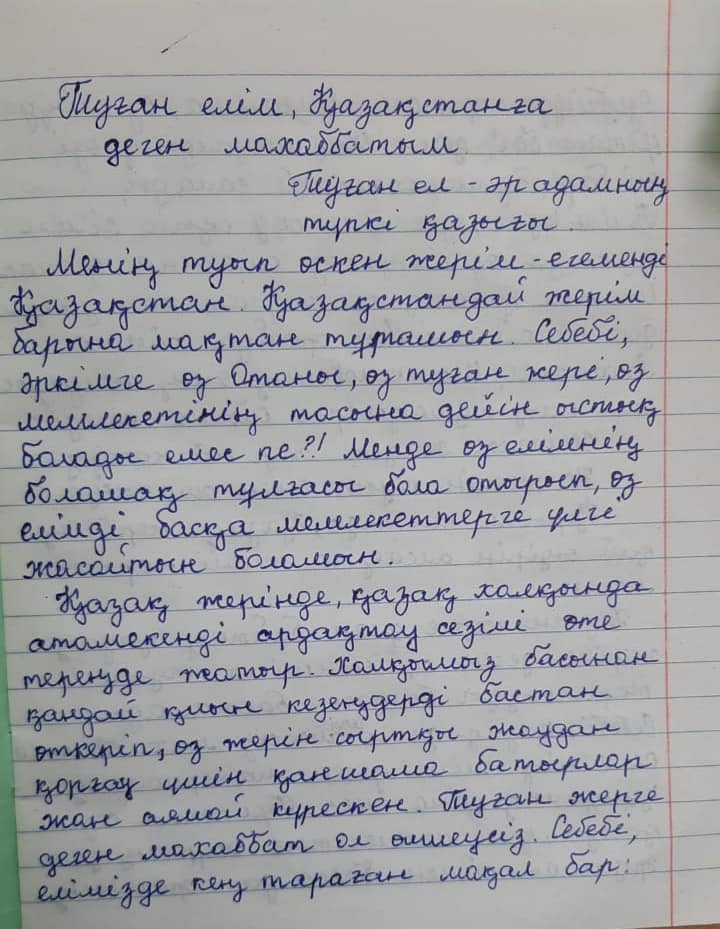 Туған елім, Қазақстанға
деген махаббатым
Туған ел - әр адамның
түпкі қазығы.
Менің туып өскен жерім - егеменді
Қазақстан. Қазақстандай жерім
барына мақтан тұтамын. Себебі,
әркімге өз Отаны, өз туған жері, өз
мемлекетінің тасына дейін ыстық
болады емес пе?! Менде өз елімнің
болашақ тұлғасы бола отырып, өз
елімді басқа мемлекеттерге үлгі
жасайтын боламын.
Қазақ жерінде, қазақ халқында
атамекенді ардақтау сезімі өте
тереңде жатыр. Халқымыз басынан
қандай қиын кезеңдерді бастан
өткеріп, өз жерін сыртқы жаудан
қорғау үшін қаншама батырлар
жан аямай күрескен. Туған жерге
деген махаббат ол өлшеусіз. Себебі,
елімізде кең тараған мақал бар: